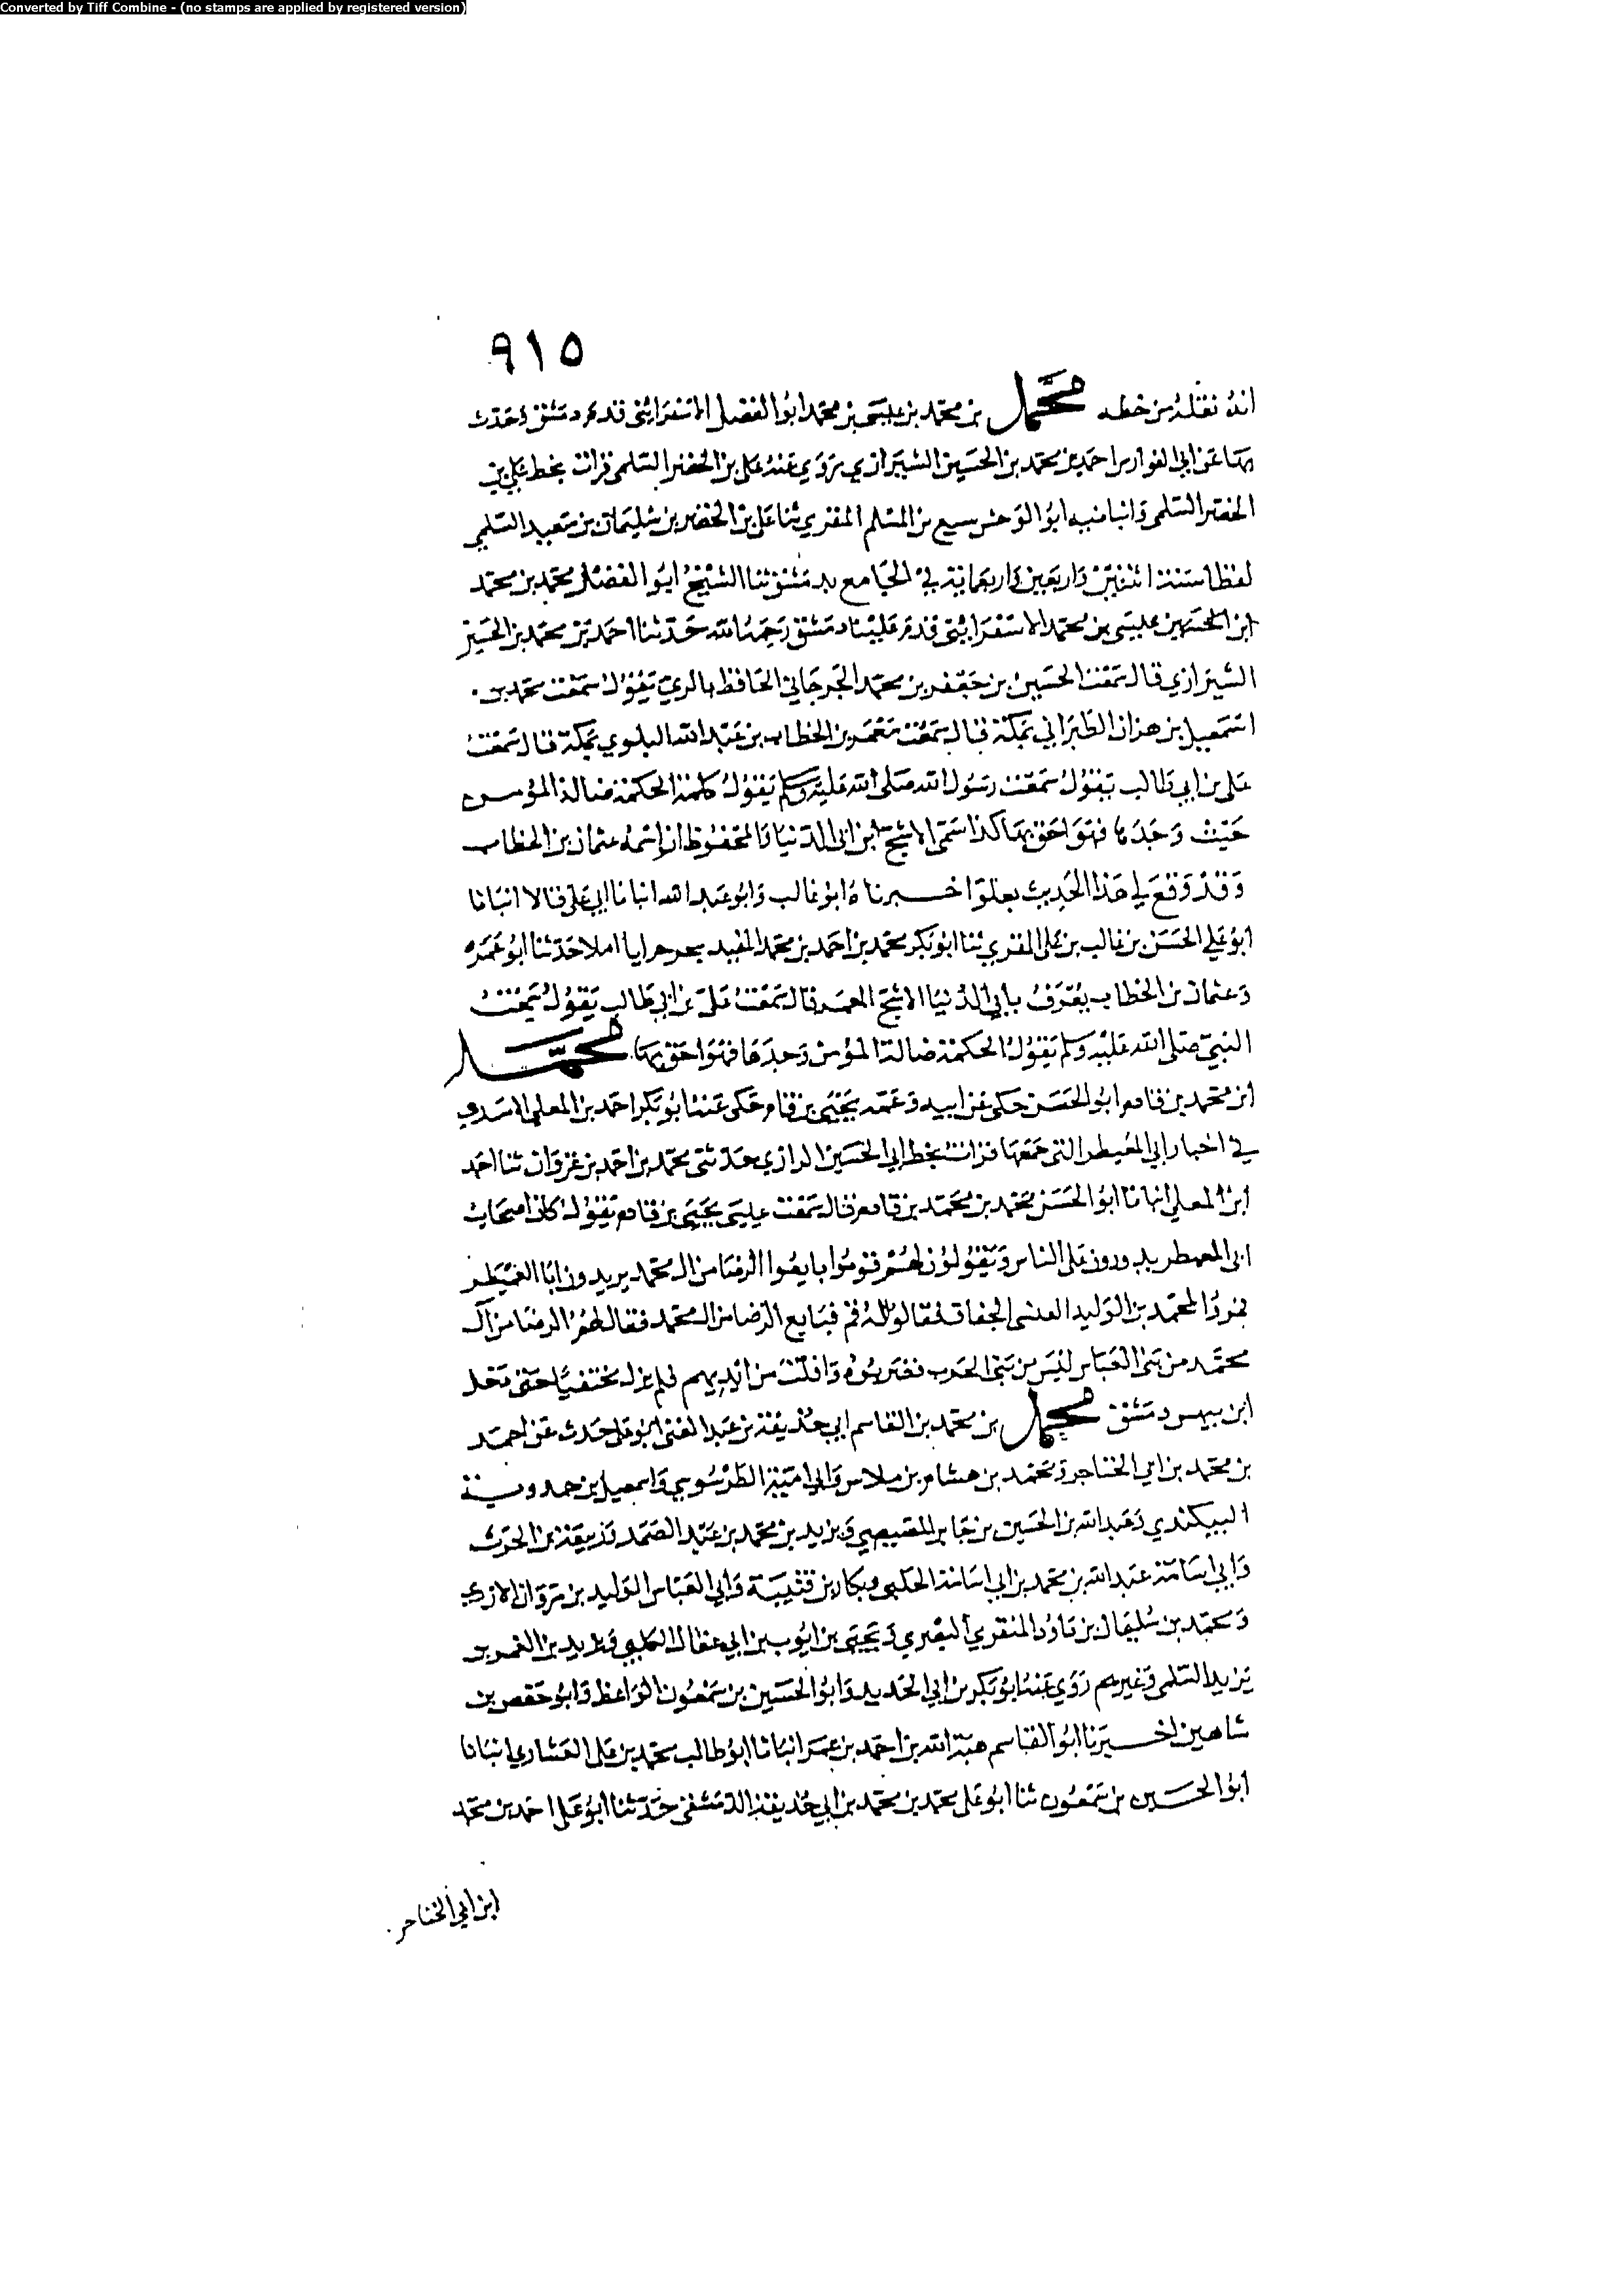 Converted by Tiff Combine - (no stamps are applied by registered version)
٩١٥
انه نقله من خطه محمد بن محمد بن عيسى بن محمد ابو الفضل الاسفرائنى قدم دمشق وحدث
بها عن ابي الفوارس احمد بن محمد بن الحسين الشيرازي روي عنه على بن الخضر السلمى قرات بخط على بن
الخضر السلمى وانبانيه ابو الوحش سبيع بن المسلم المقري ثنا على بن الخضر بن سليمان بن سعيد السلمي
لفظا سنة اثنين واربعين واربعماية في الجامع بدمشق ثنا الشيخ ابو الفضل محمد بن محمد
ابن الحسين عيسى بن محمد الاسفرائنى قدم علينا دمشق رحمه الله حدثنا احمد بن محمد بن الحسين
الشيرازي قال سمعت الحسين بن جعفر بن محمد الجرجاني الحافظ بالري يقول سمعت محمد بن
اسمعيل بن هزان الطبراني بمكة قال سمعت معمر بن الخطاب بن عبد الله البلوي بمكة قال سمعت
على بن ابي طالب يقول سمعت رسول الله صلى الله عليه وسلم يقول كلمة الحكمة ضالة المؤمن
حيث وجدها فهو احق بها كذا سمى الاشج ابن ابي الدنيا والمحفوظ ان اسمه عثمان بن الخطاب
وقد وقع لي هذا الحديث بعلو اخبرناه ابو غالب وابو عبد الله انبانا ابي على قالا انبانا
ابو علي الحسن بن غالب بن على المقري ثنا ابو بكر محمد بن احمد بن محمد المفيد بجرجرايا املا حدثنا ابو عمره
وعثمان بن الخطاب يعرف بابي الدنيا الاشج المعمر قال سمعت على بن ابي طالب يقول سمعت
النبي صلى الله عليه وسلم يقول الحكمة ضالة المؤمن وجدها فهو احق بها محمد
ابن محمد بن قامع ابو الحسن حكى عن ابيه وعمه يحيى بن قامع حكى عنه ابو بكر احمد بن المعلى الاسدي
في اخبار ابي العميطر التى جمعها قرات بخط ابي الحسين الرازي حدثنى محمد بن احمد بن غزوان ثنا احمد
ابن المعلى انبانا ابو الحسن محمد بن محمد بن قامع قال سمعت عيسى يحيى بن قامع يقول كان اصحاب
ابى العميطر يدورون على الناس ويقولون لهم قوموا بايعوا الرضا من ال محمد يريدون ابا العميطر
بمحمد بن الوليد فقالوا له قم فبايع الرضا من ال محمد فقال لهم الرضا من آل
محمد من بنى العباس ليس من بنى الحرب فضربوه وافلت من ايديهم فلم يزل مختفيا حتى دخل
ابن بيهس دمشق محمد بن محمد بن القاسم ابي حذيفة بن عبد الغنى ابو على حدث عن احمد
بن محمد بن ابي الخناجر ومحمد بن هشام بن ملاس وابي امية الطرسوسي واسمعيل بن حمدويه
البيكندي وعبد الله بن الحسين بن جابر المصيصي ويزيد بن محمد بن عبد الصمد وربيعة بن الحرث
وابي اسامة عبد الله بن محمد بن ابي اسامة الحلبي وبكار بن قتيبة وابي العباس الوليد بن مروان الازدي
ومحمد بن سليمان بن داود المنقري البصري ويحيى بن ايوب بن ابي عقال الكلبي ويزيد بن الغمر بن
يزيد السلمى وغيرهم روي عنه ابو بكر بن ابي الحديد وابو الحسين بن سمعون الواعظ وابو حفص بن
شاهين اخبرنا ابو القاسم هبة الله بن احمد بن عمر انبانا ابو طالب محمد بن على العشاري انبانا
ابو الحسين بن سمعون ثنا ابو على محمد بن محمد بن ابي حذيفة الدمشقى حدثنا ابو على احمد بن محمد
ابن ابي الخناجر